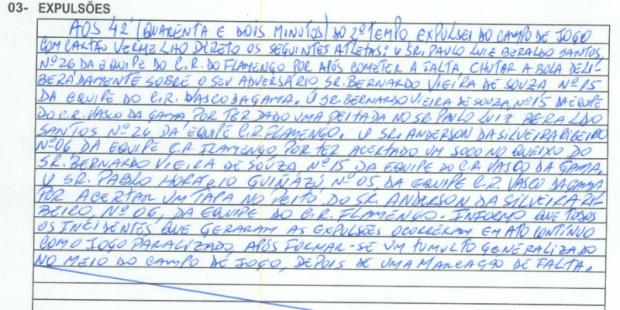 03- EXPULSÕES
AOS 42' (QUARENTA E DOIS MINUTOS) DO 2º TEMPO EXPULSEI DO CAMPO DE JOGO
COM CARTÃO VERMELHO DIRETO OS SEGUINTES ATLETAS: O SR. PAULO LUIZ BERALDO SANTOS,
Nº 26 DA EQUIPE DO C.R. DO FLAMENGO POR APÓS COMETER A FALTA, CHUTAR A BOLA DELI-
BERADAMENTE SOBRE O SEU ADVERSÁRIO SR. BERNARDO VIEIRA DE SOUZA, Nº 15
DA EQUIPE DO C.R. VASCO DA GAMA. O SR. BERNARDO VIEIRA DE SOUZA, Nº 15 DA EQUIPE
DO C.R. VASCO DA GAMA POR TER DADO UMA PEITADA NO SR. PAULO LUIZ BERALDO
SANTOS Nº 26 DA EQUIPE C.R. FLAMENGO. O SR. ANDERSON DA SILVEIRA RIBEIRO
Nº 06 DA EQUIPE C.R. FLAMENGO POR TER ACERTADO UM SOCO NO QUEIXO DO
SR. BERNARDO VIEIRA DE SOUZA Nº 15 DA EQUIPE DO C.R. VASCO DA GAMA.
O SR. PABLO HORÁCIO GUIÑAZÚ, Nº 05 DA EQUIPE C.R. VASCO DA GAMA
POR ACERTAR UM TAPA NO PEITO DO SR. ANDERSON DA SILVEIRA RI-
BEIRO, Nº 06, DA EQUIPE DO C.R. FLAMENGO. INFORMO QUE TODOS
OS INCIDENTES QUE GERARAM AS EXPULSÕES OCORRERAM EM ATO CONTÍNUO
COM O JOGO PARALIZADO, APÓS FORMAR-SE UM TUMULTO GENERALIZADO
NO MEIO DO CAMPO DE JOGO, DEPOIS DE UMA MARCAÇÃO DE FALTA.